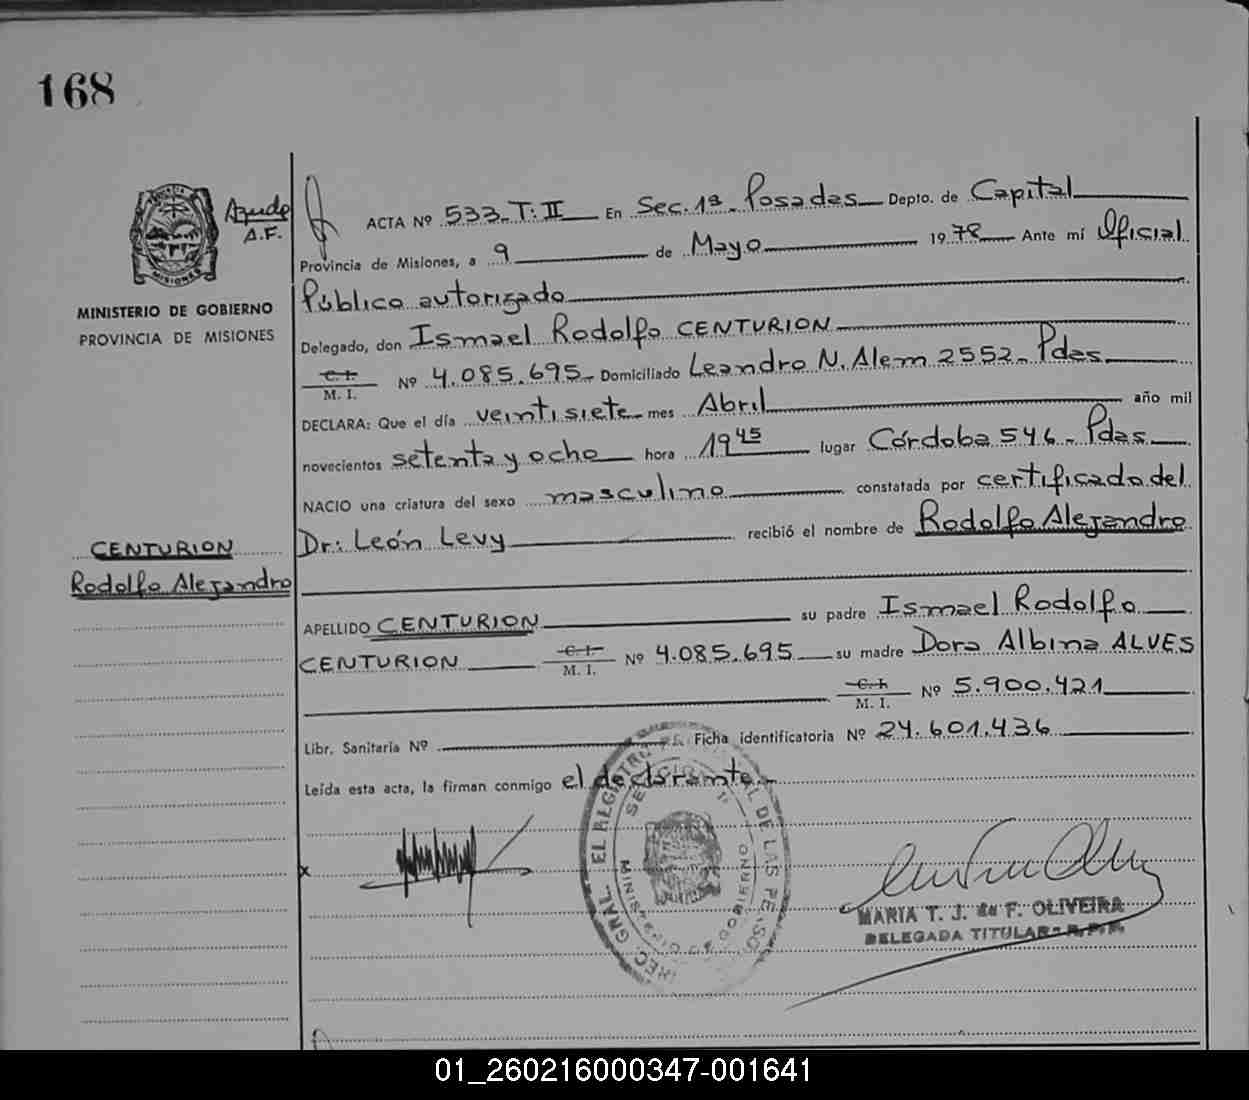 168
Ayudo
A.F.
MINISTERIO DE GOBIERNO
PROVINCIA DE MISIONES
ACTA Nº 533-T:II En Sec. 1ª- Posadas Depto. de Capital
Provincia de Misiones, a 9 de Mayo 1978 Ante mí Oficial
Público autorizado
Delegado, don Ismael Rodolfo CENTURION
C. I.
M. I. Nº 4.085.695 Domiciliado Leandro N. Alem 2552- Pdas
DECLARA: Que el día veintisiete mes Abril año mil
novecientos setenta y ocho hora 19 45 lugar Córdoba 546- Pdas
NACIO una criatura del sexo masculino constatada por certificado del
Dr: León Levy recibió el nombre de Rodolfo Alejandro
CENTURION
Rodolfo Alejandro
APELLIDO CENTURION su padre Ismael Rodolfo
CENTURION C. I.
M. I. Nº 4.085.695 su madre Dora Albina ALVES
C. I.
M. I. Nº 5.900.421
Libr. Sanitaria Nº Ficha identificatoria Nº 24.601.436
Leída esta acta, la firman conmigo el declarante-
x
MARIA T. J. de F. OLIVEIRA
DELEGADA TITULAR - R.P.P.
01_260216000347-001641